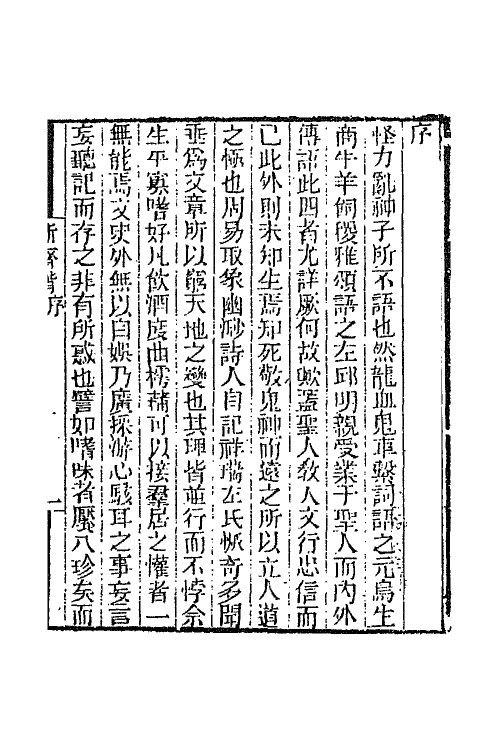 序
怪力亂神子所不語也然龍血鬼車繫詞語之元鳥生
商牛羊飼稷雅頌語之左邱明親受業于聖人而內外
傳語此四者尤詳厥何故歟蓋聖人敎人文行忠信而
已此外則未知生焉知死敬鬼神而遠之所以立人道
之極也周易取象幽渺詩人自記祥瑞左氏恢奇多聞
垂爲文章所以窮天地之變也其理皆並行而不悖余
生平寡嗜好凡飲酒度曲樗蒱可以接羣居之懽者一
無能焉文史外無以自娛乃廣採游心駭耳之事妄言
妄聽記而存之非有所惑也譬如嗜味者饜八珍矣而
新齊諧序
一